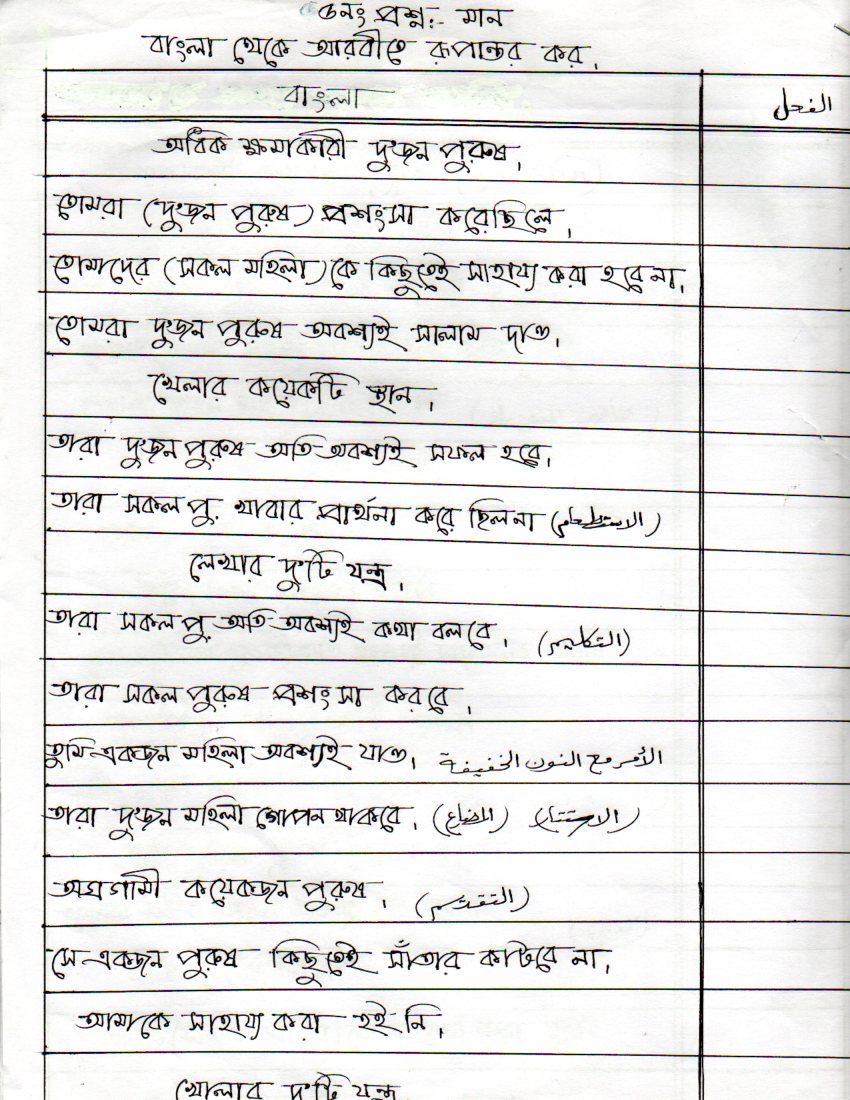 ৩নং প্রশ্ন:- মান
বাংলা থেকে আরবীতে রূপান্তর কর.
বাংলা الفعل
অধিক ক্ষমাকারী দু'জন পুরুষ.
তোমরা (দু'জন পুরুষ) প্রশংসা করেছিলে.
তোমাদের (সকল মহিলা) কে কিছুতেই সাহায্য করা হবে না.
তোমরা দু'জন পুরুষ অবশ্যই সালাম দাও.
খেলার কয়েকটি স্থান.
তারা দু'জন পুরুষ অতি-অবশ্যই সফল হবে.
তারা সকল পু. খাবার প্রার্থনা করে ছিলনা (الاستطعام)
লেখার দু'টি যন্ত্র.
তারা সকল পু. অতি-অবশ্যই কথা বলবে. (التكليم)
তারা সকল পুরুষ প্রশংসা করবে.
তুমি একজন মহিলা অবশ্যই যাও. الأمر مع النون الخفيفة
তারা দু'জন মহিলা গোপন থাকবে. (المضارع) (الاستتار)
অগ্রগামী কয়েকজন পুরুষ. (التقديم)
সে একজন পুরুষ কিছুতেই সাঁতার কাটবে না.
আমাকে সাহায্য করা হই নি.
খোলার দু'টি যন্ত্র